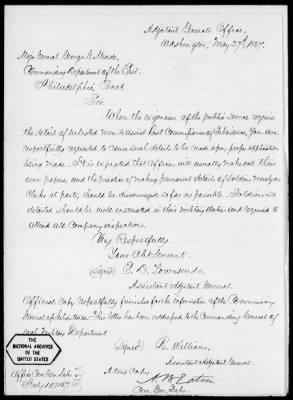 Adjutant General's Office,
Washington, May 27th, 1867.
Maj. General George G. Meade,
Commanding Department of the East.
Philadelphia Penna
Sir:
When the exigencies of the public service require
the detail of enlisted men to assist Post Commissaries of Subsistence, You are
respectfully requested to cause such details to be made upon proper application
being made. It is expected that Officers will usually make out their
own papers, and the practice of making permanent details of Soldiers merely as
Clerks at posts, should be discouraged so far as possible. Soldiers so
detailed should be well instructed in their Military duties and required to
attend all Company inspections.
Very Respectfully
Your Obt Servant
(signed) E. D. Townsend.
Assistant Adjutant General.
Official Copy respectfully furnished for the information of the Commissary
General of Subsistence. This letter has been addressed to the Commanding General of
each Military Department
(signed) R. Williams,
Assistant Adjutant General.
A true Copy
A. B. Eaton
Com. Gen. Subs.
THE
NATIONAL ARCHIVES
OF THE
UNITED STATES
Office Com. Gen. Subs.